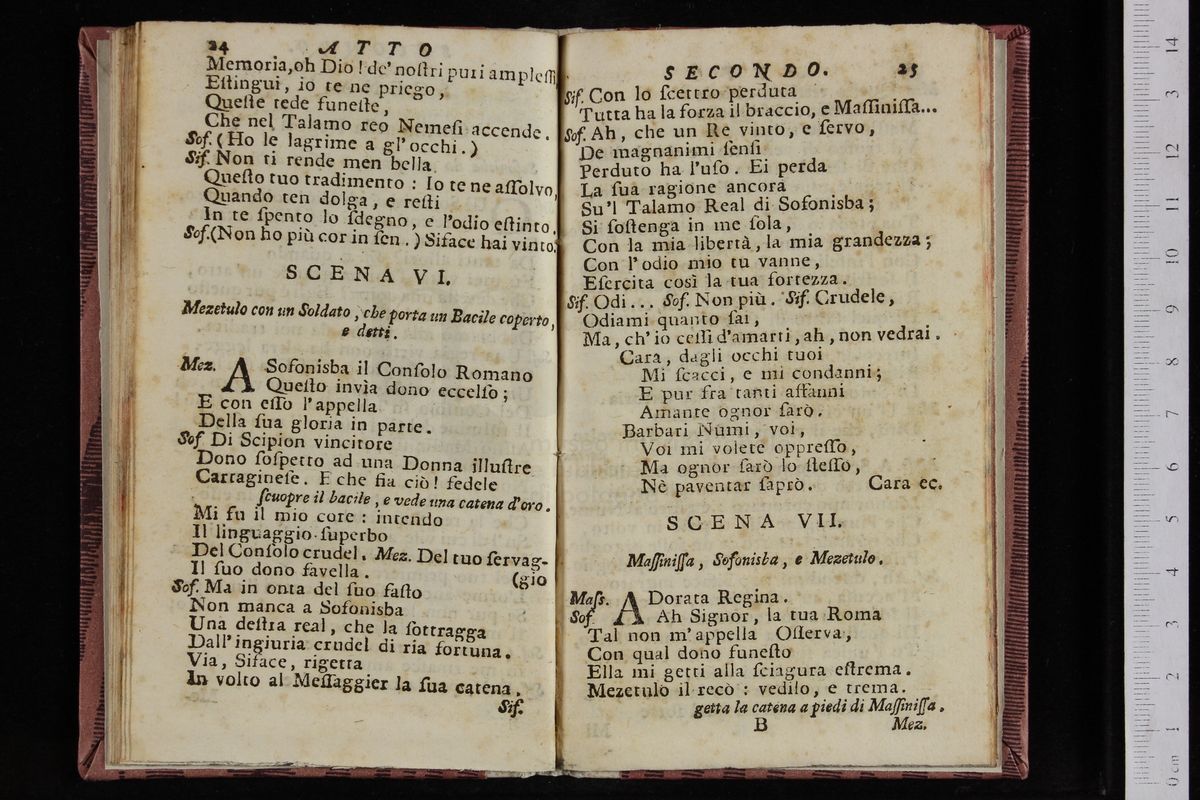 24 ATTO
Memoria, oh Dio! de' noſtri puri ampleſſi
Eſtingui, io te ne priego,
Queſte tede funeſte,
Che nel Talamo reo Nemeſi accende.
Sof. (Ho le lagrime a gl'occhi.)
Sif. Non ti rende men bella
Queſto tuo tradimento: Io te ne aſſolvo,
Quando ten dolga, e reſti
In te ſpento lo ſdegno, e l'odio eſtinto.
Sof. (Non ho più cor in ſen.) Siface hai vinto.
SCENA VI.
Mezetulo con un Soldato, che porta un Bacile coperto,
e detti.
Mez. A Sofonisba il Conſolo Romano
Queſto invia dono eccelſo;
E con eſſo l'appella
Della ſua gloria in parte.
Sof Di Scipion vincitore
Dono ſoſpetto ad una Donna illuſtre
Cartagineſe. E che fia ciò! fedele
ſcuopre il bacile, e vede una catena d'oro.
Mi fu il mio core: intendo
Il linguaggio ſuperbo
Del Conſolo crudel. Mez. Del tuo ſervag-
Il ſuo dono favella. (gio
Sof. Ma in onta del ſuo faſto
Non manca a Sofonisba
Una deſtra real, che la ſottragga
Dall'ingiuria crudel di ria fortuna.
Via, Siface, rigetta
In volto al Meſſaggier la ſua catena.
Sif.
SECONDO. 25
Sif. Con lo ſcettro perduta
Tutta ha la forza il braccio, e Maſſiniſſa...
Sof. Ah, che un Re vinto, e ſervo,
De magnanimi ſenſi
Perduto ha l'uſo. Ei perda
La ſua ragione ancora
Su'l Talamo Real di Sofonisba;
Si ſoſtenga in me ſola,
Con la mia libertà, la mia grandezza;
Con l'odio mio tu vanne,
Eſercita così la tua fortezza.
Sif. Odi... Sof. Non più. Sif. Crudele,
Odiami quanto ſai,
Ma, ch'io ceſſi d'amarti, ah, non vedrai.
Cara, dagli occhi tuoi
Mi ſcacci, e mi condanni;
E pur fra tanti affanni
Amante ognor ſarò.
Barbari Numi, voi,
Voi mi volete oppreſſo,
Ma ognor ſarò lo ſteſſo,
Nè paventar ſaprò. Cara ec.
SCENA VII.
Maſſiniſſa, Sofonisba, e Mezetulo.
Maſs. ADorata Regina.
Sof Ah Signor, la tua Roma
Tal non m'appella Oſſerva,
Con qual dono funeſto
Ella mi getti alla ſciagura eſtrema.
Mezetulo il recò: vedilo, e trema.
getta la catena a piedi di Maſſiniſſa.
B Mez.
0 cm 1 2 3 4 5 6 7 8 9 10 11 12 3 14